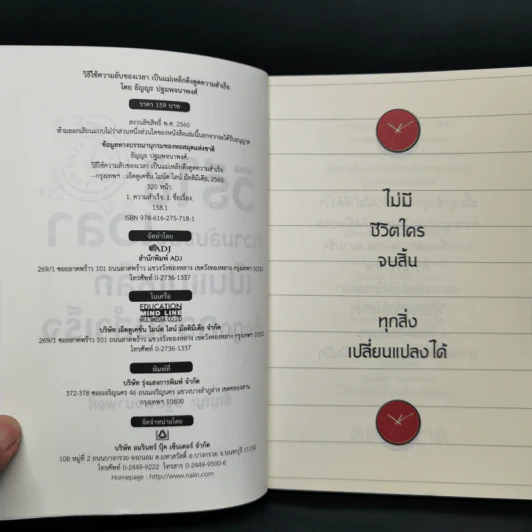 วิธีใช้ความลับของเวลา เป็นแม่เหล็กดึงดูดความสำเร็จ
โดย ธัญญะ ปฐมพจนาพงศ์
ราคา 159 บาท
สงวนลิขสิทธิ์ พ.ศ. 2560
ห้ามลอกเลียนแบบไม่ว่าส่วนหนึ่งส่วนใดของหนังสือเล่มนี้นอกจากจะได้รับอนุญาต
ข้อมูลทางบรรณานุกรมของหอสมุดแห่งชาติ
ธัญญะ ปฐมพจนาพงศ์.
วิธีใช้ความลับของเวลา เป็นแม่เหล็กดึงดูดความสำเร็จ.
--กรุงเทพฯ : เอ็ดดูเคชั่น ไมน์ด ไลน์ มัลติมีเดีย, 2560.
320 หน้า.
1. ความสำเร็จ. I. ชื่อเรื่อง.
158.1
ISBN 978-616-275-718-1
จัดทำโดย
ADJ
สำนักพิมพ์ ADJ
269/1 ซอยลาดพร้าว 101 ถนนลาดพร้าว แขวงวังทองหลาง เขตวังทองหลาง กรุงเทพฯ 10310
โทรศัพท์ 0-2736-1337
ในเครือ
EDUCATION
MIND LINE
MULTIMEDIA CO.,LTD
บริษัท เอ็ดดูเคชั่น ไมน์ด ไลน์ มัลติมีเดีย จำกัด
269/1 ซอยลาดพร้าว 101 ถนนลาดพร้าว แขวงวังทองหลาง เขตวังทองหลาง กรุงเทพฯ
โทรศัพท์ 0-2736-1337
พิมพ์ที่
บริษัท รุ่งแสงการพิมพ์ จำกัด
372-378 ซอยเจริญนคร 46 ถนนเจริญนคร แขวงบางลำภูล่าง เขตคลองสาน
กรุงเทพฯ 10600
จัดจำหน่ายโดย
บริษัท อมรินทร์ บุ๊ค เซ็นเตอร์ จำกัด
108 หมู่ที่ 2 ถนนบางกรวย-จงถนอม ต.มหาสวัสดิ์ อ.บางกรวย จ.นนทบุรี 11130
โทรศัพท์ 0-2449-9222 โทรสาร 0-2449-9500-6
Homepage : http://www.naiin.com
ไม่มี
ชีวิตใคร
จบสิ้น
ทุกสิ่ง
เปลี่ยนแปลงได้